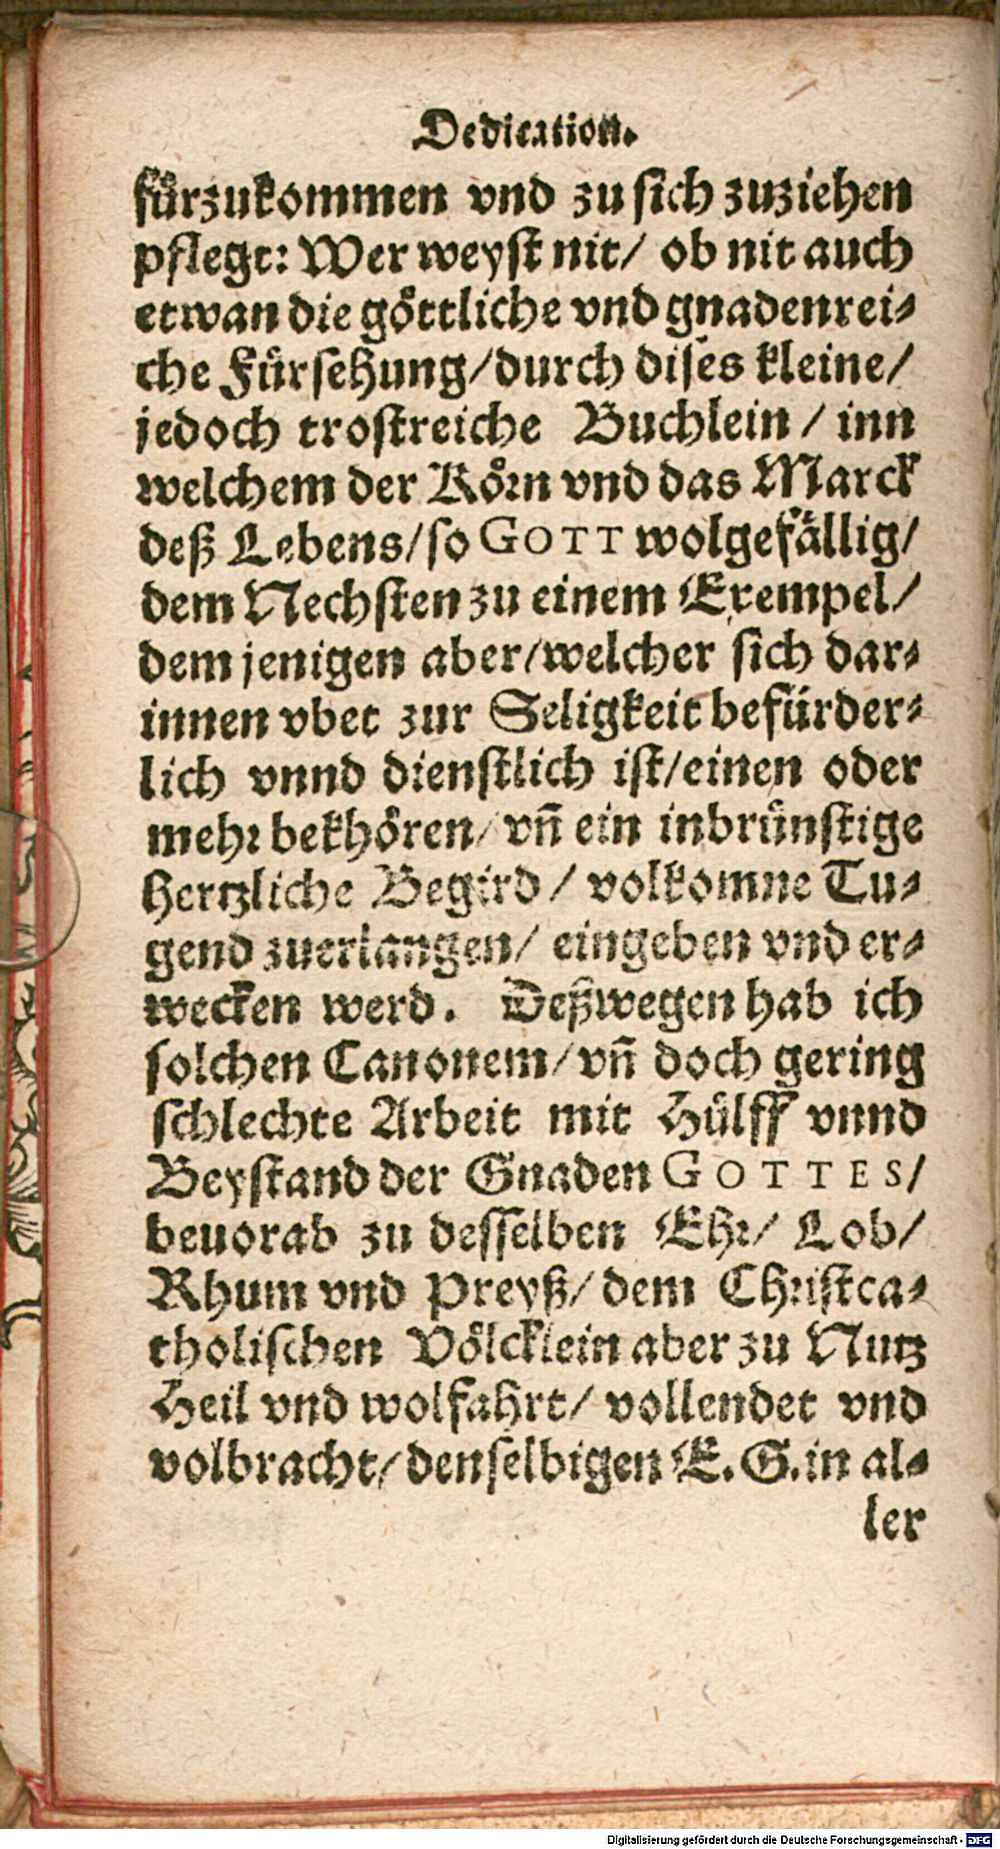 Dedication.
fürzukommen vnd zu sich zuziehen
pflegt: Wer weyst nit/ ob nit auch
etwan die göttliche vnd gnadenrei-
che Fürsehung/durch dises kleine/
jedoch trostreiche Buchlein / inn
welchem der Körn vnd das Marck
deß Lebens/so GOTT wolgefällig/
dem Nechsten zu einem Exempel/
dem jenigen aber/welcher sich dar-
innen vbet zur Seligkeit befürder-
lich vnnd dienstlich ist/einen oder
mehr bekhören/vñ ein inbrünstige
hertzliche Begird / volkomne Tu-
gend zuerlangen/ eingeben vnd er-
wecken werd. Deßwegen hab ich
solchen Canonem/vñ doch gering
schlechte Arbeit mit Hülff vnnd
Beystand der Gnaden GOTTES/
beuorab zu desselben Ehr/ Lob/
Rhum vnd Preyß/ dem Christca-
tholischen Völcklein aber zu Nutz
Heil vnd wolfahrt/ vollendet vnd
volbracht/denselbigen E. G. in al-
ler
Digitalisierung gefördert durch die Deutsche Forschungsgemeinschaft - DFG